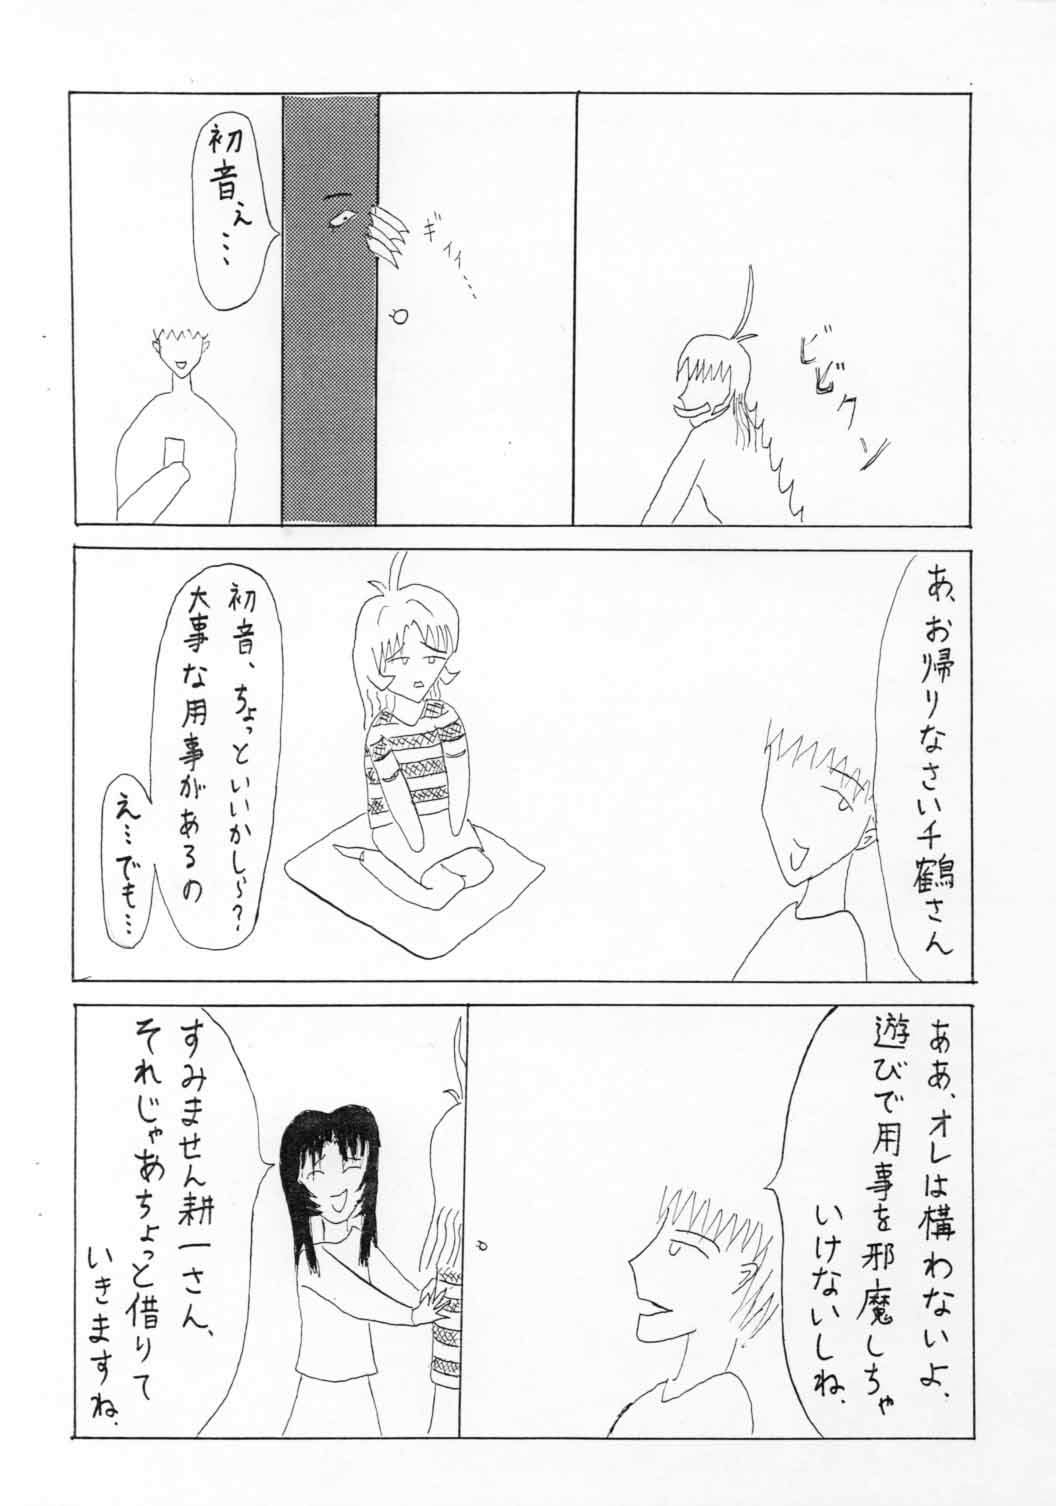 ビビクン
ギィィィ…
初音ぇ…
あ、お帰りなさい千鶴さん
初音、ちょっといいかしら?
大事な用事があるの
え…でも…
ああ、オレは構わないよ、
遊びで用事を邪魔しちゃ
いけないしね、
すみません耕一さん、
それじゃあちょっと借りて
いきますね、